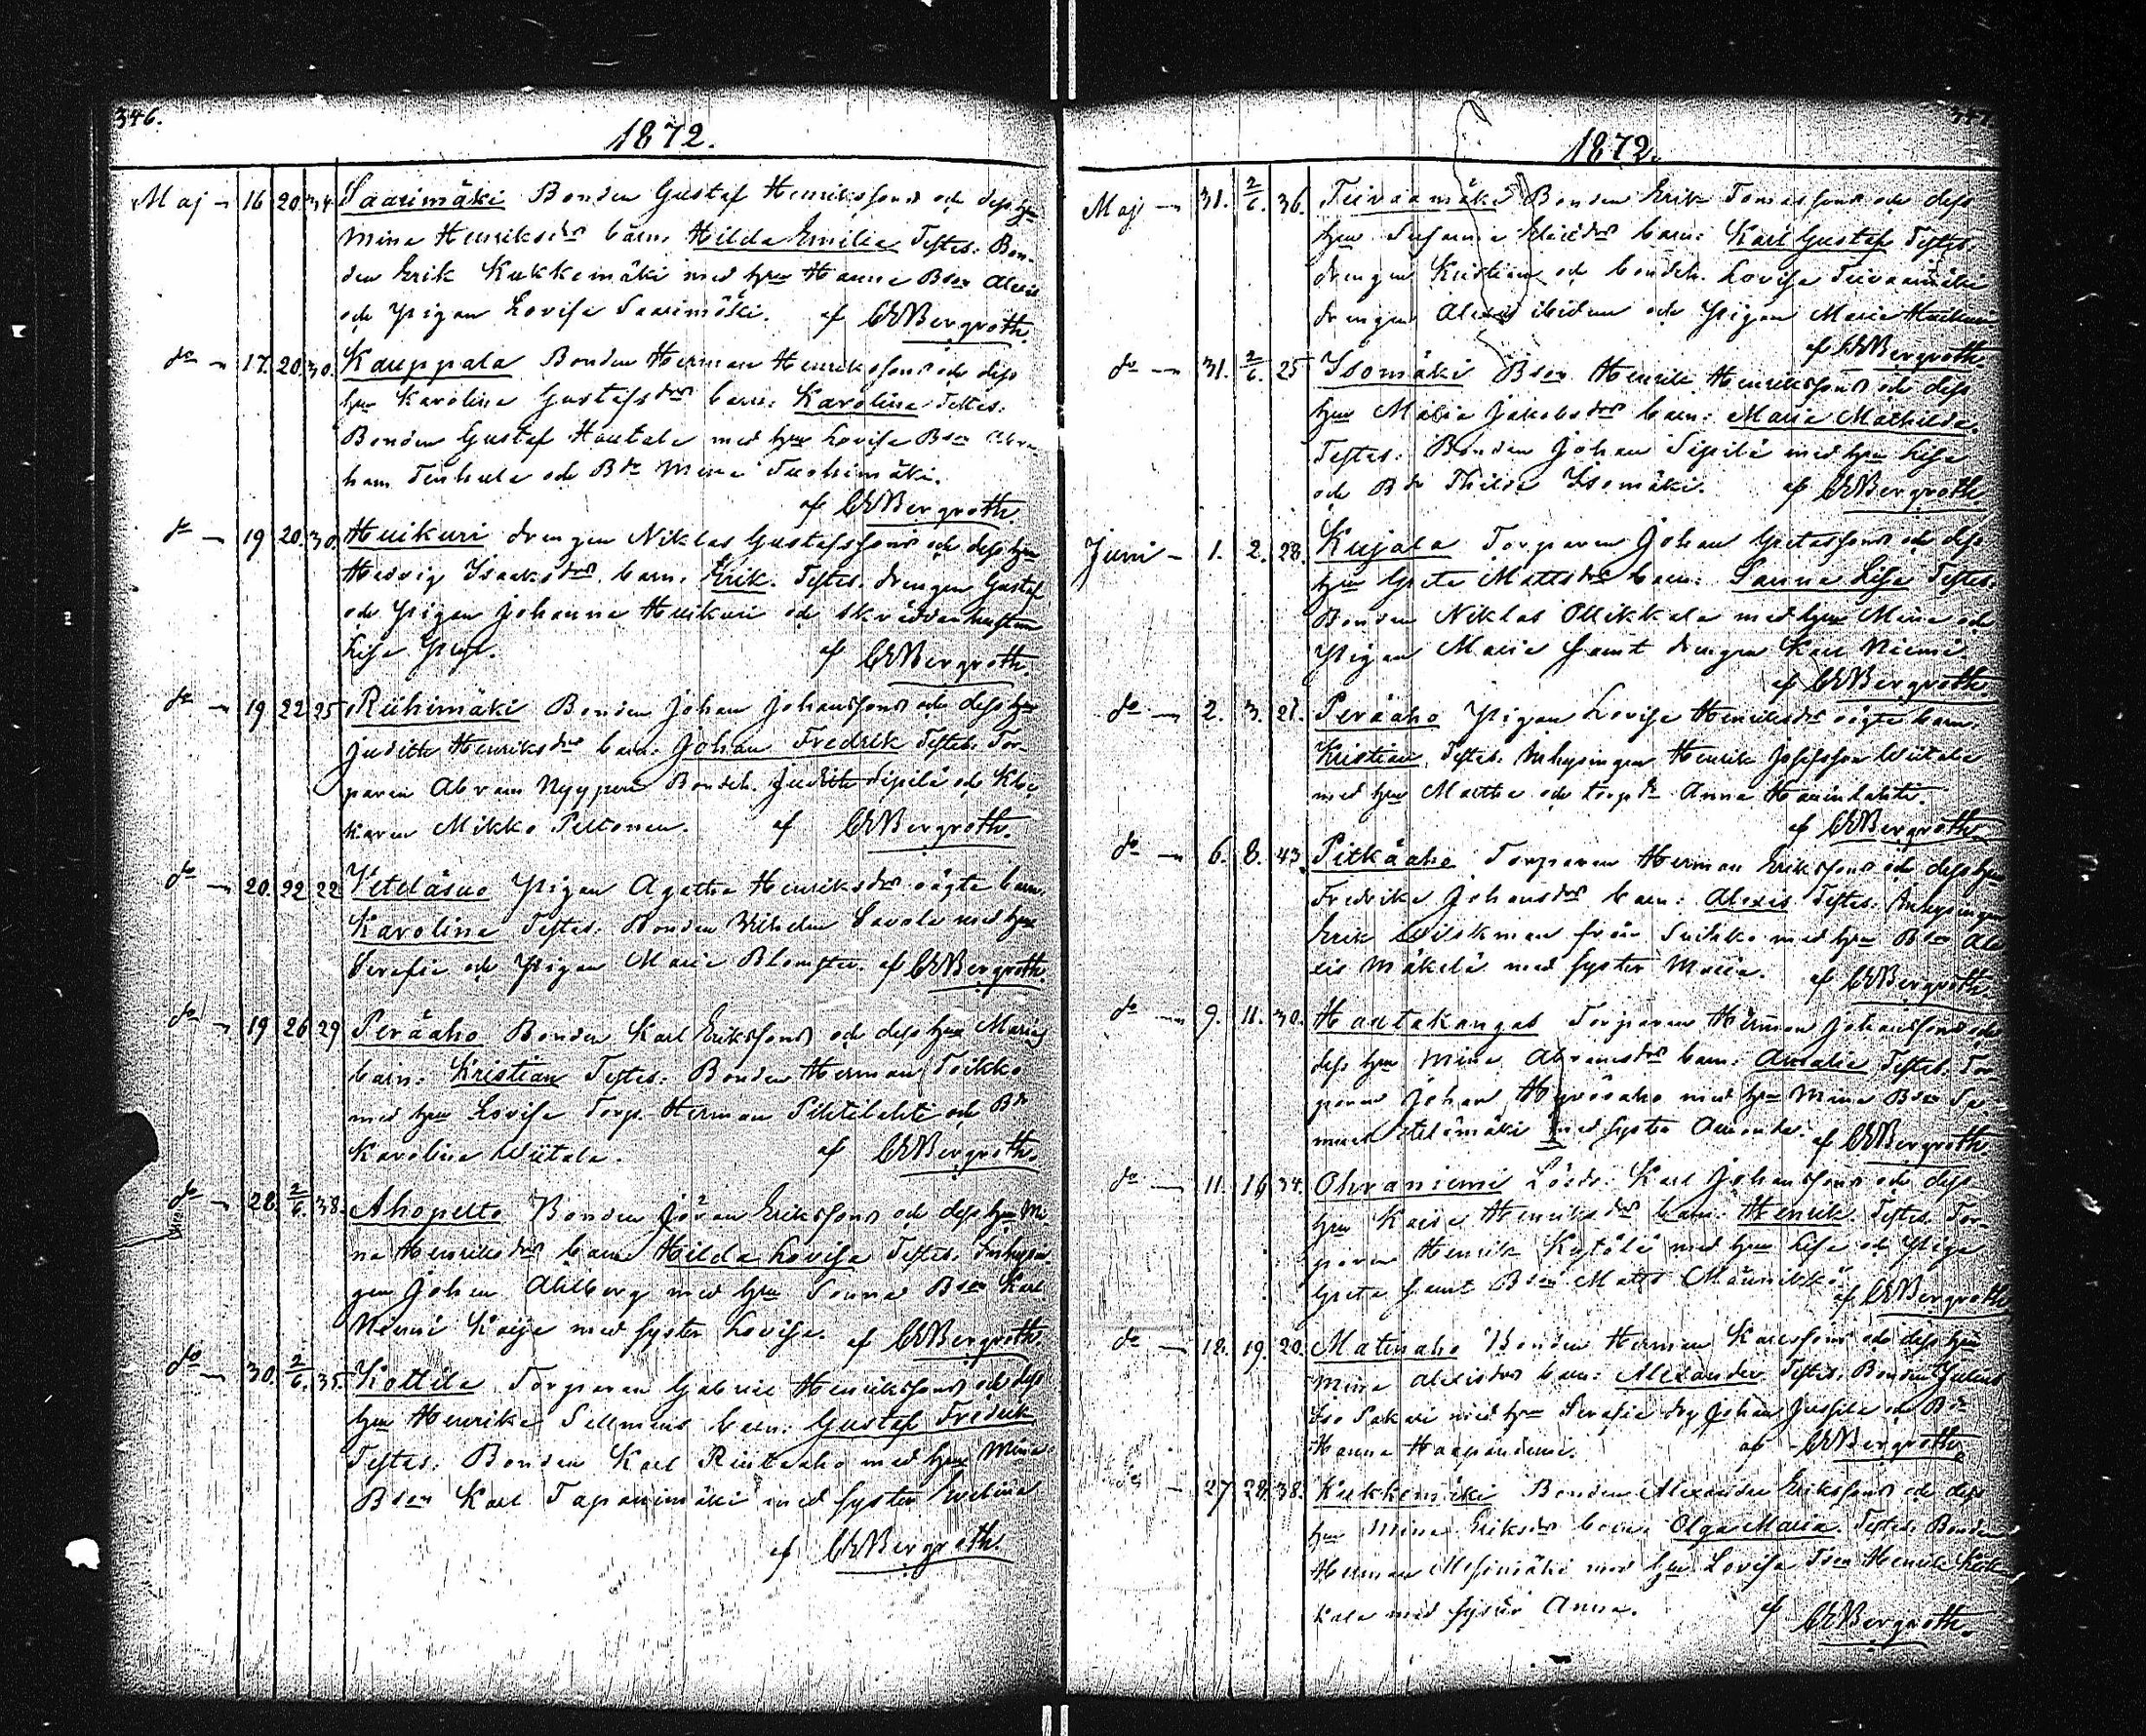 346.
1872.
Maj 16 20 34 Saarimäki Bonden Gustaf Henriksson och dess hu
Mina Henriksdr barn. Hilda Emilia Testes: Bon-
den Erik Kukkemäki med hu Hanna Bson Alexis
och Pigan Lovisa Saarimäki. af CEBergroth.
do 17. 20. 30. Kauppala Bonden Herman Henriksson och dess
hu Karolina Gustafsdr barn: Karolina Testes.
Bonden Gustaf Hautala med hu Lovisa Bson Abra-
ham och Bdr Mina Tuohimäki.
af CEBergroth.
do 19 20. 30. Huikuri drengen Niklas Gustafsson och dess hu
Hedvig Isaksdr. barn. Erik. Testes. drengen Gustaf
och Pigan Johanna Huikuri och skräddarhustrun
Lisa
af CEBergroth.
do 19 22 25 Riihimäki Bonden Johan Johansson och dess hu
Judith Henriksdr barn. Johan Fredrik Testes. Tor-
paren Abram Nyyperi Bondeh. Judith Sipilä och Kloc
karen Mikko Peltonen. af CEBergroth.
do 20. 22 22 Veteläsuo Pigan Agatha Henriksdr oägta barn.
Karolina Testes: Bonden Wilhelm Savola med hu
Serafia och Pigan Maria Blomster. af CEBergroth.
do 19 26 29 Peräaho Bonden Karl Eriksson och dess hu Maria
barn: Kristian Testes: Bonden Herman Toikko
med hu Lovisa Torp. Herman Pihtilahti och Bdr
Karolina Wiitala. af CEBergroth.
do 28. 2/6. 38. Ahopelto Bonden Göran Eriksson och dess hu Mi
na Henriksdr barn Hilda Lovisa Testes. Inhysin
gen Johan Ahlberg med hu Sanna Bson Karl
Niemi med syster Lovisa. af CEBergroth.
do 30. 2/6. 35. Kottila Torparen Gabriel Henriksson och dess
hu Henrika Sellmens barn: Gustaf Fredrik
Testes: Bonden Karl Rintaaho med hu Mina
Bson Karl Tapanimäki med syster Evelina
af CEBergroth.
1872.
Maj 31. 2/6. 36. Teivaamäki Bonden Erik Tomasson och dess
hu Susanna barn: Karl Gustaf Testes.
drengen Kristian och bondeh. Lovisa Teivaamäki
drengen Alexis ibidem och Pigan Maria
af CEBergroth.
do 31. 2/6. 25 Isomäki Bson Henrik Henriksson och dess
hu Maria Jakobsdr barn: Maria Mathilda.
Testes: Bonden Johan Sipilä med hu Lisa
och Bdr Thilda Isomäki. af CEBergroth.
Juni 1. 2. 28. Kujala Torparen Johan Gretasson och dess
hu Greta Mattsdr barn: Sanna Lisa Testes.
Bonden Niklas Ollikkala med hu Mina och
Pigan Maria samt drengen Karl Niemi.
af CEBergroth.
do 2. 3. 21. Peräaho Pigan Lovisa Henriksdr oägta barn.
Kristian, Testes. Inhysingen Henrik Josefsson Wiitala
med hu Martha och torpdr Anna
af CEBergroth.
do 6. 8. 43. Pitkäaho Torparen Herman Eriksson och dess hu
Fredrika Johansdr barn: Alexis Testes: Inhysingen
Erik Wiskman från med hu Bson Ale
xis Mäkelä med syster Maria. af CEBergroth.
do 9. 11. 30. Hautakangas Torparen Herman Johansson och
dess hu Mina Abramsdr barn: Amalia Testes. Tor
paren Johan med hu Mina Bson Sa-
muel Etelämäki med syster Amanda. af CEBergroth.
do 11. 16 34. Ohraniemi Lösdr. Karl Johansson och dess
hu Kaisa Henriksdr barn: Henrik Testes. Tor-
paren Henrik Kytölä med hu Lisa och Piga
Greta samt Bson Matts Männikkö af CEBergroth
do 12. 19. 20. Matinaho Bonden Herman Karlsson och dess hu
Mina Alexisdr barn: Alexander Testes. Bonden Julius
Iso Pakari med hu Serafia drg Johan Jussila och Bdr
Hanna Haapaniemi. af CEBergroth.
27. 28. 38. Kukkemäki Bonden Alexander Eriksson och dess
hu Mina Eriksdr barn. Olga Maria. Testes. Bonden
Herman med hu Lovisa Henrik
kala med syster Anna. af CEBergroth.